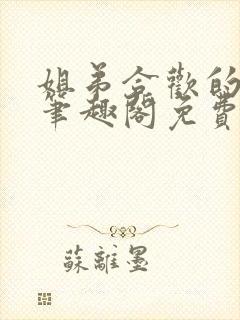 姐弟合歡的
筆趣閣免費
蘇離墨